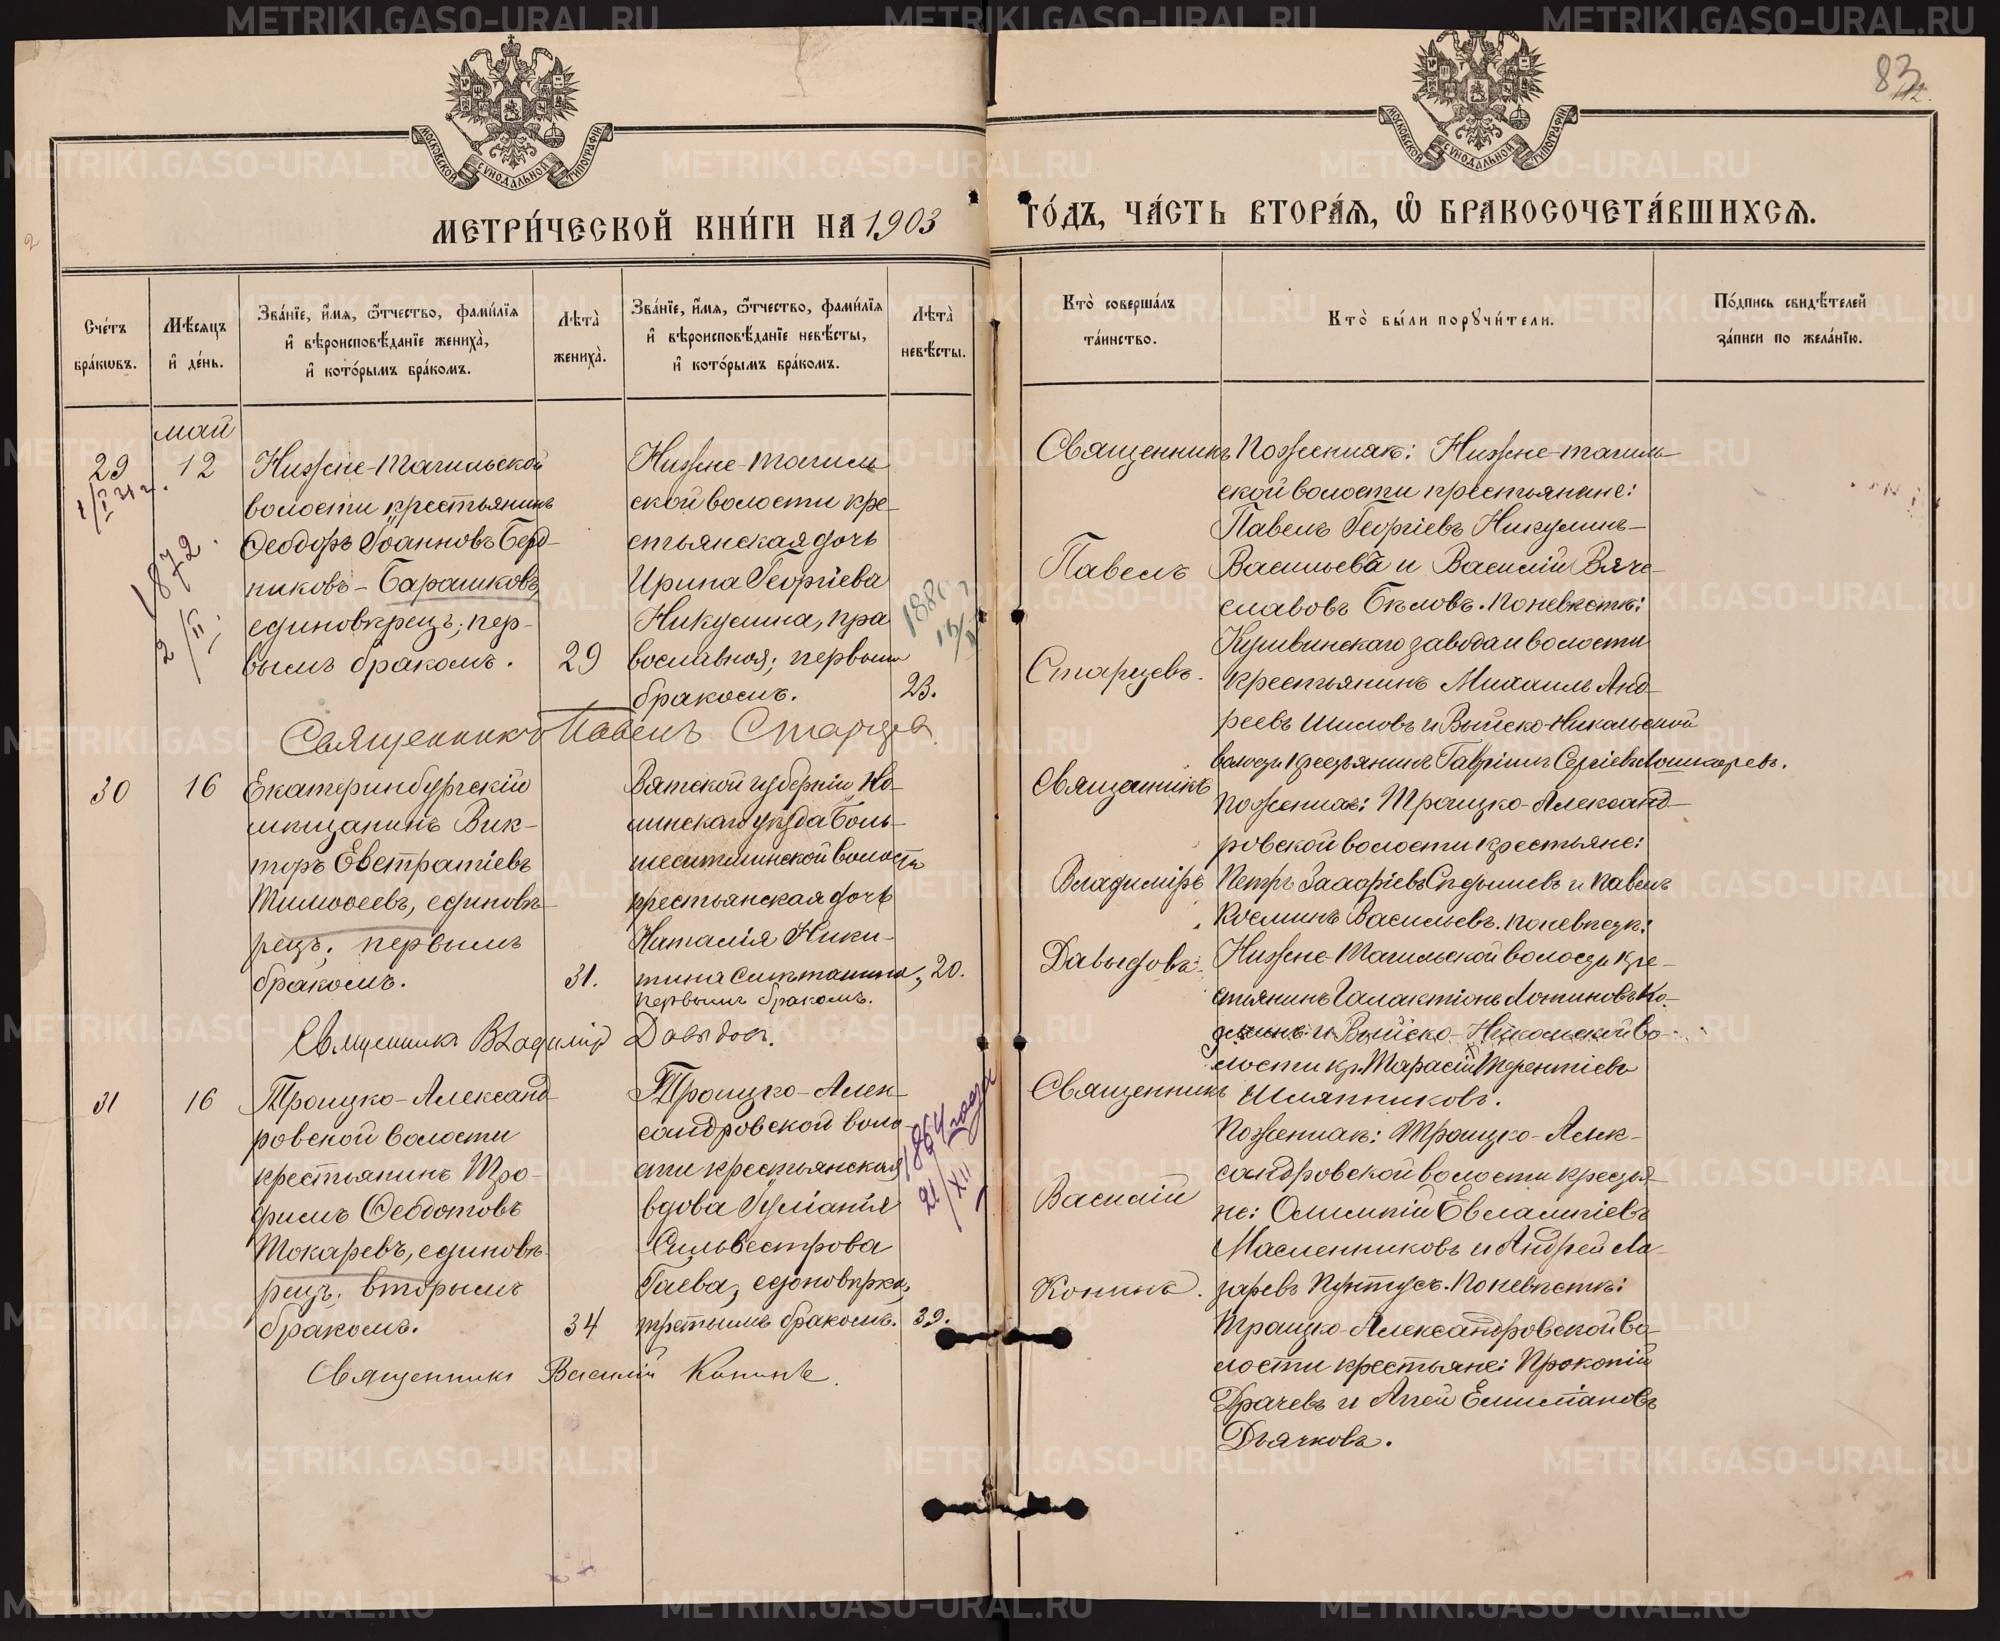 83
МОСКОВСКОЙ СѴНОДАЛЬНОЙ ТИПОГРАФІИ
МОСКОВСКОЙ СѴНОДАЛЬНОЙ ТИПОГРАФІИ
МЕТРИ́ЧЕСКОЙ КНИ́ГИ НА 1903 ГО́ДЪ, ЧА́СТЬ ВТОРА́Ѧ, Ѽ БРАКОСОЧЕТА́ВШИХСѦ.
Сче́тъ бра́кѡвъ.
Мѣ́сѧцъ и҆ де́нь.
Зва́нїе, и҆́мѧ, ѻ҆́тчество, фами́лїѧ
и҆ вѣроисповѣ́данїе жениха̀,
и҆ кото́рымъ бра́комъ.
Лѣта̀ жениха̀.
Зва́нїе, и҆́мѧ, ѻ҆́тчество, фами́лїѧ
и҆ вѣроисповѣ́данїе невѣ́сты,
и҆ кото́рымъ бра́комъ.
Лѣта̀ невѣ́сты.
Кто̀ соверша́лъ та́инство.
Кто̀ бы́ли порꙋчи́тели.
По́дпись свидѣ́телей
за́писи по жела́нїю.
май
29
12
Нижне-Тагильской
волости крестьянинъ
Ѳеодоръ Іоанновъ Берд-
никовъ-Барашковъ,
единовѣрецъ; пер-
вымъ бракомъ.
29
Нижне-Тагиль
ской волости кре-
стьянская дочь
Ирина Георгіева
Никулина, пра
вославная; первымъ
бракомъ.
23.
1872
Священникъ Павелъ Старцевъ
Священникъ
Павелъ
Старцевъ.
По женихѣ: Нижне-Тагиль
ской волости крестьяне:
Павелъ Георгіевъ Никулинъ-
Васильевъ и Василій Вяче-
славовъ Бѣловъ. По невѣстѣ:
Кушвинскаго завода и волости
крестьянинъ Михаилъ Анд-
реевъ Шиловъ и Выйско-Никольской
волости крестьянинъ Гавріилъ Сергіевъ Лошкаревъ.
30
16
Екатеринбургскій
мѣщанинъ Вик-
торъ Евстратіевъ
Тимоѳеевъ, единовѣ-
рецъ; первымъ
бракомъ.
31.
Вятской губерніи, Но-
линскаго уѣзда Боль-
шеситминской волости
крестьянская дочь
Наталія Ники-
тина
первымъ бракомъ.
20.
Священникъ Владимір Давыдовъ.
Священникъ
Владиміръ
Давыдовъ.
По женихѣ: Троицко-Александ-
ровской волости крестьяне:
Петръ Захаріевъ и Павелъ
Косминъ Васильевъ. По невѣстѣ:
Нижне-Тагильской волости кре-
стьянинъ Галактіонъ Логиновъ
и Выйско-Никольской во-
лости кр. Тарасій Терентіевъ
Шляпниковъ.
31
16
Троицко-Александ-
ровской волости
крестьянинъ Тро-
фимъ Ѳеодотовъ
Токаревъ, единовѣ-
рецъ; вторымъ
бракомъ.
34
Троицко-Алек-
сандровской воло-
сти крестьянская
вдова Іуліанія
Сильвестрова
Гаева, единовѣрка,
третьимъ бракомъ.
39.
1864 года
21/XII
Священникъ Василій Конинъ.
Священникъ
Василій
Конинъ.
По женихѣ: Троицко-Алек-
сандровской волости крестья-
не: Олимпій Евлампіевъ
Масленниковъ и Андрей Ла-
заревъ Пунтусъ. По невѣстѣ:
Троицко-Александровской во-
лости крестьяне: Прокопій
Драчевъ и Аггей Емиліановъ
Дьячковъ.
METRIKI.GASO-URAL.RU